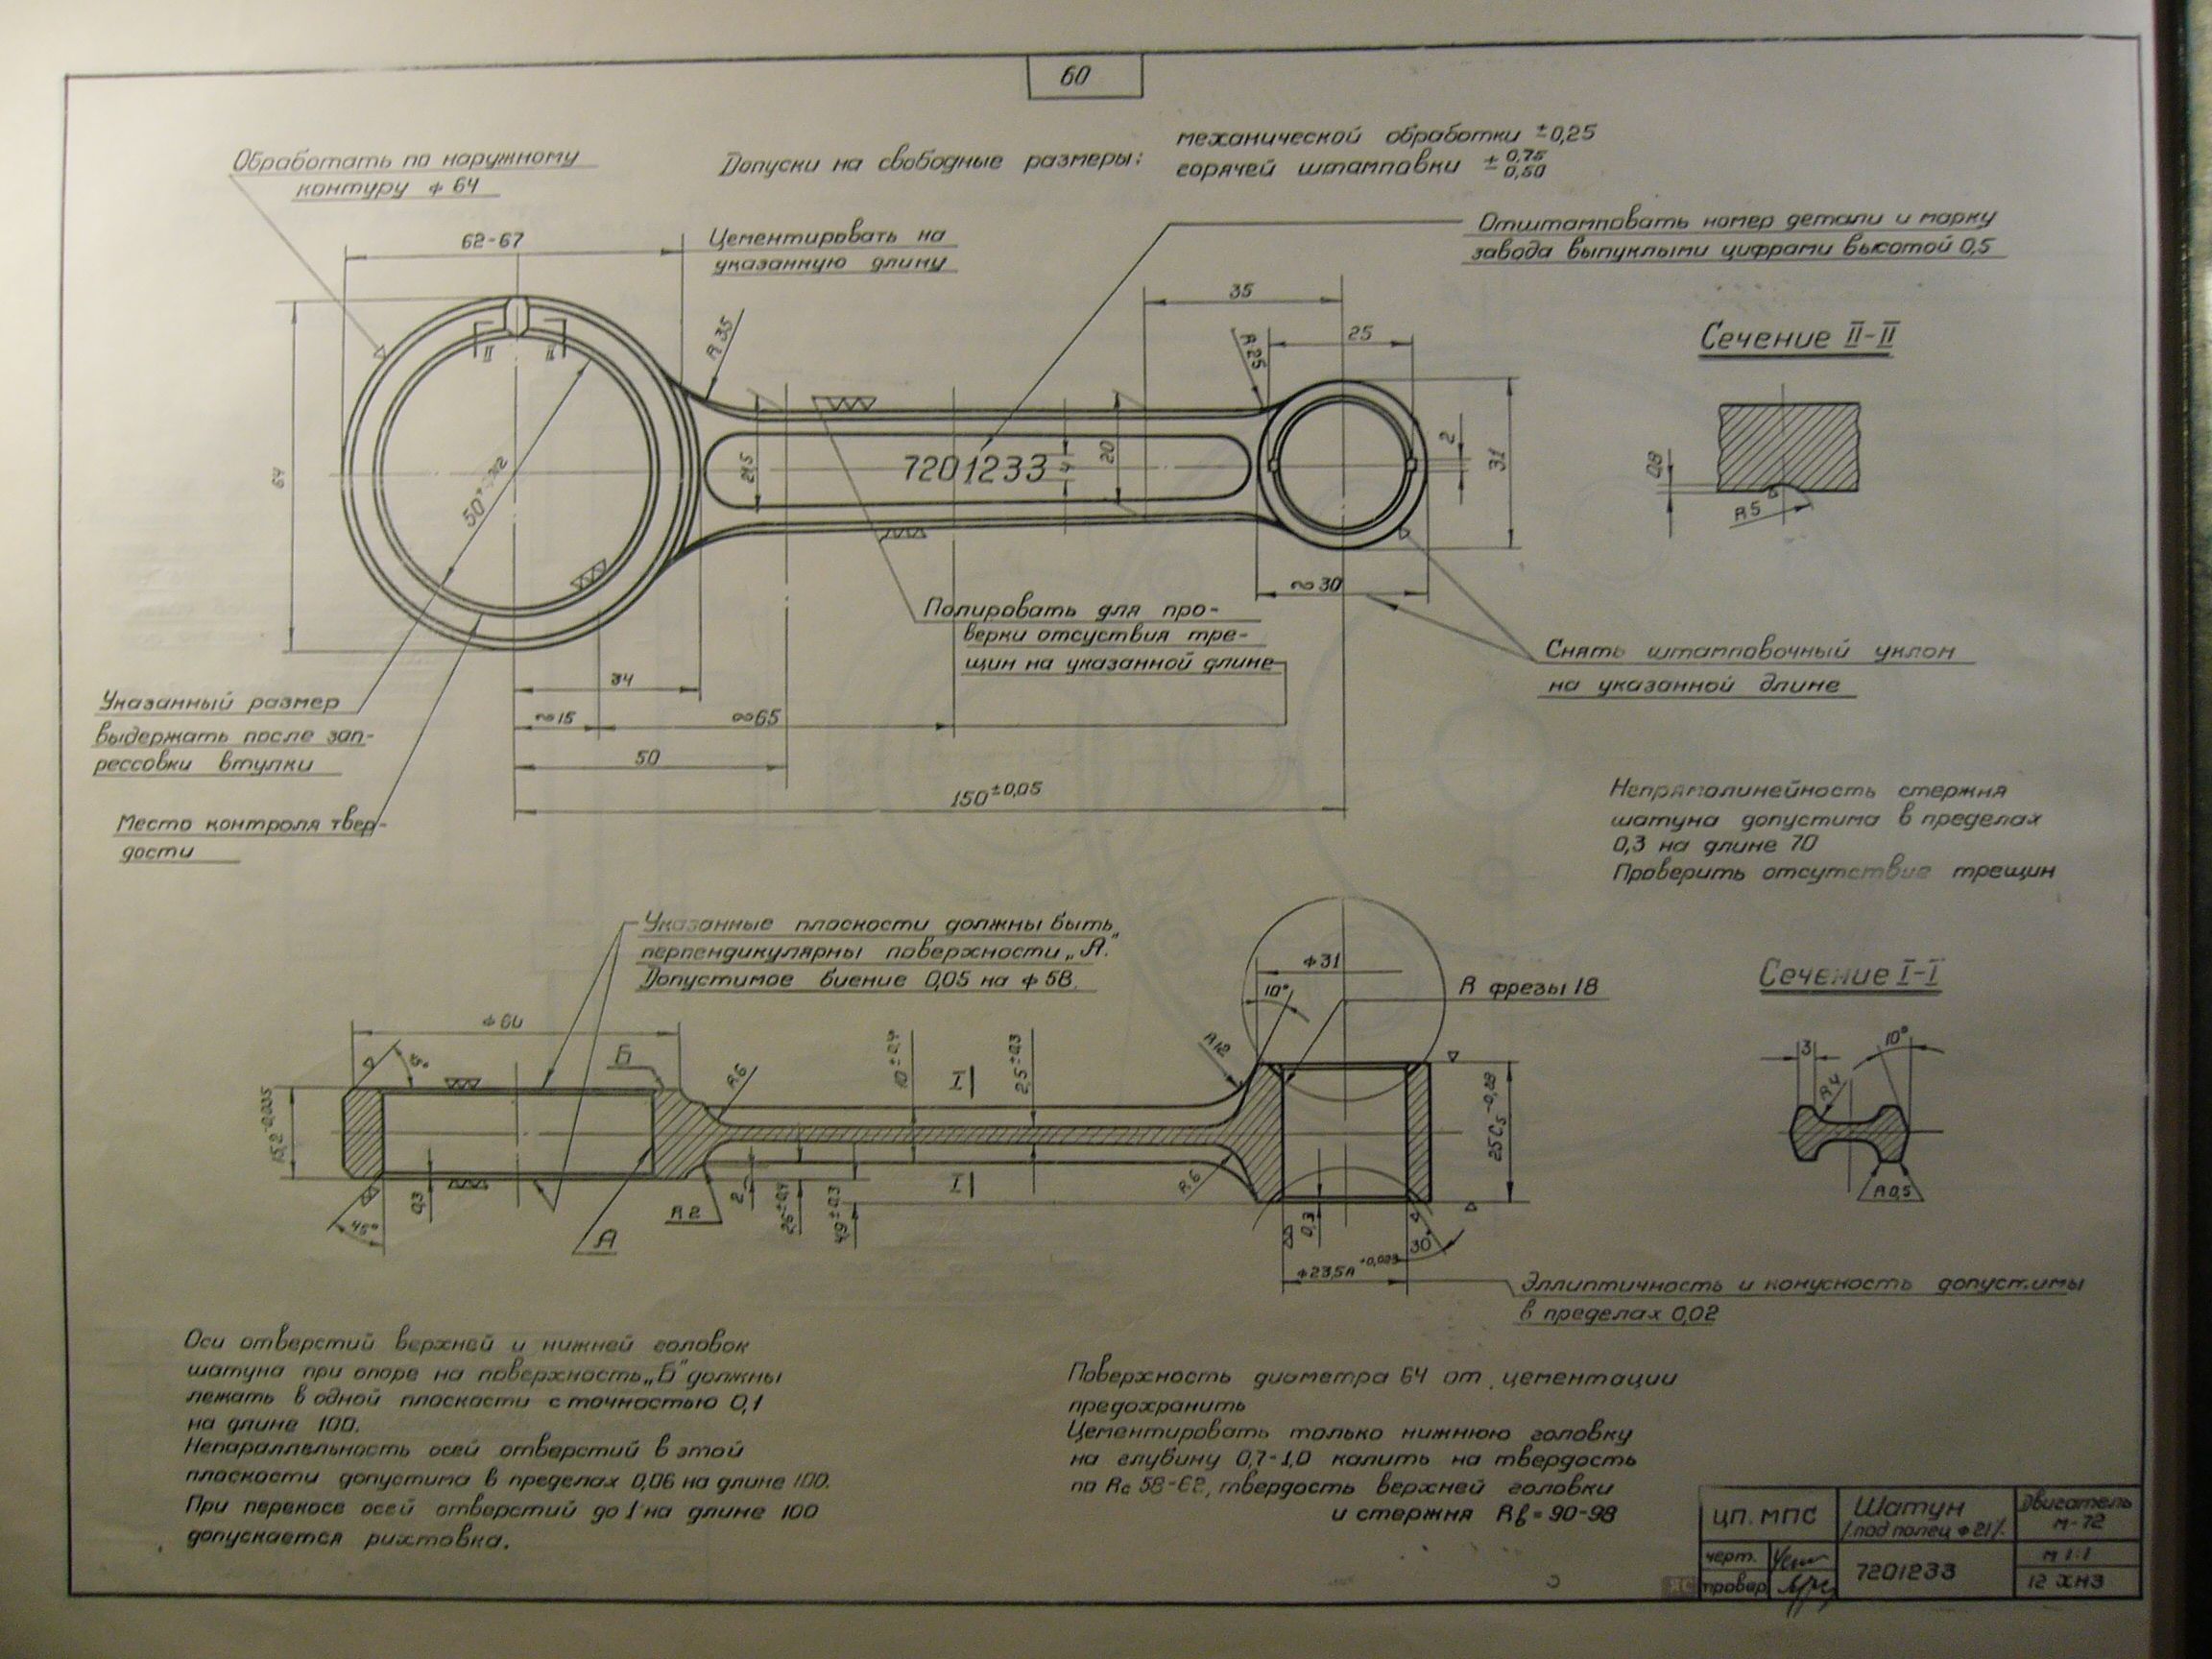 60
Обработать по наружному
контуру ф 64
Допуски на свободные размеры:
механической обработки ±0,25
горячей штамповки ± 0,75
0,50
62-67
Цементировать на
указанную длину
Отштамповать номер детали и марку
завода выпуклыми цифрами высотой 0,5
35
R 35
R 25
25
Сечение II-II
II
II
64
21,5
7201233
4
20
2
31
0,8
R5
∾30
Полировать для про-
верки отсуствия тре-
щин на указанной длине
Снять штамповочный уклон
на указанной длине
34
∾15
∾65
50
150±0,05
Указанный размер
выдержать после зап-
рессовки втулки
Место контроля твер-
дости
Непрямолинейность стержня
шатуна допустима в пределах
0,3 на длине 70
Проверить отсутствие трещин
Указанные плоскости должны быть
перпендикулярны поверхности „А"
Допустимое биение 0,05 на ф 58
ф31
10°
R фрезы 18
Сечение I-I
Б
R6
10±0,4
I
2,5±0,3
R12
15,2-0,035
25С5-0,28
3
10°
R4
R0,5
45°
0,3
А
R2
2
I
R6
0,3
30°
ф23,5А+0,023
Эллиптичность и конусность допустимы
в пределах 0,02
Оси отверстий верхней и нижней головок
шатуна при опоре на поверхность „Б" должны
лежать в одной плоскости с точностью 0,1
на длине 100.
Непараллельность осей отверстий в этой
плоскости допустима в пределах 0,06 на длине 100.
При перекосе осей отверстий до 1 на длине 100
допускается рихтовка.
Поверхность диаметра 64 от цементации
предохранить
Цементировать только нижнюю головку
на глубину 0,7-1,0 калить на твердость
по Rc 58-62, твердость верхней головки
и стержня Rb = 90-98
ЦП. МПС
Шатун
/под палец ф 21/.
Двигатель
М-72
черт.
7201233
М 1:1
провер
12 ХН3